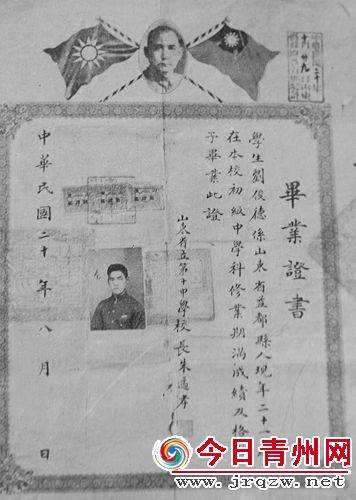 畢業證書
學生劉俊德係山東省益都縣人現年二十一
在本校初級中學科修業期滿成績及格
予畢業此證
山東省立第十中學校長朱
中華民國二十年八月 日
今日青州网
www.jrqzw.net